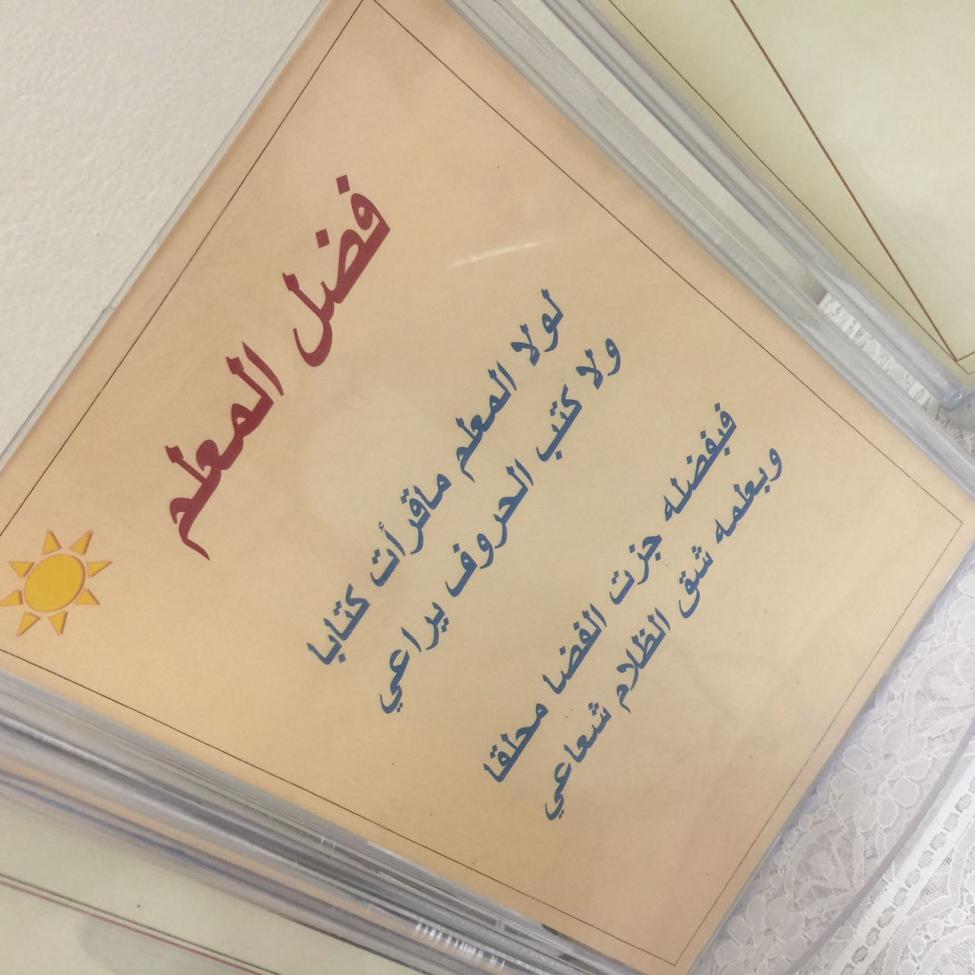 فضل المعلم
لولا المعلم ماقرأت كتابا
ولا كتب الحروف يراعي
فبفضله جزت الفضا محلقا
وبعلمه شق الظلام شعاعي